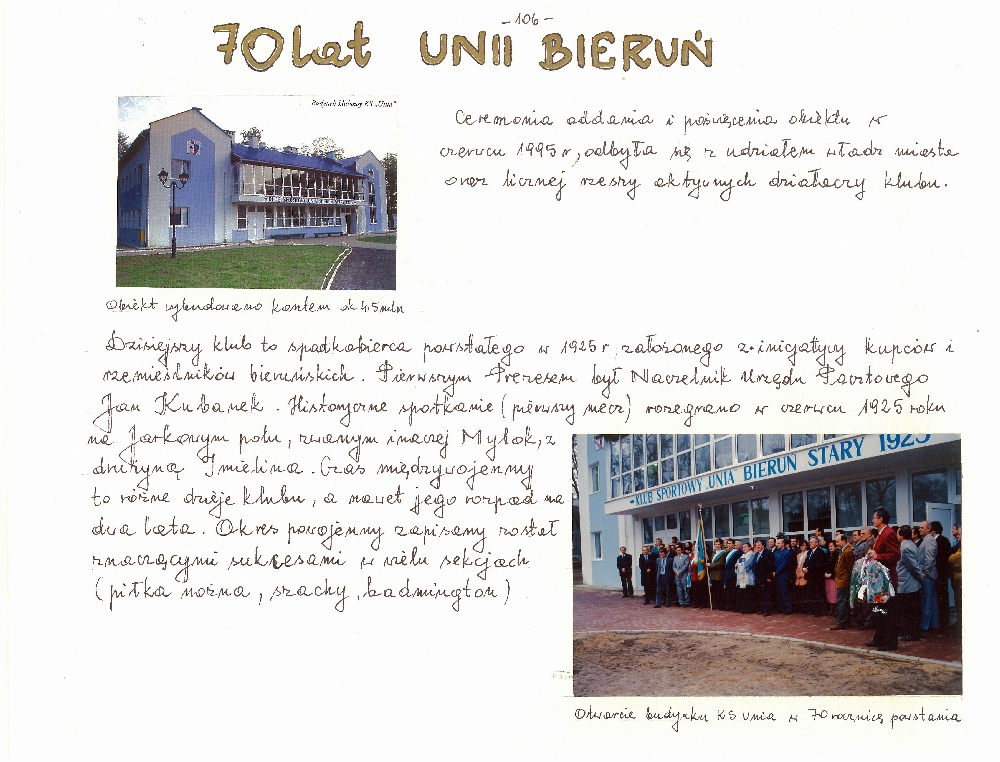 - 106 -
70 lat UNII BIERUŃ
Budynek klubowy KS „Unia"
Ceremonia oddania i poświęcenia obiektu w
czerwcu 1995 r, odbyła się z udziałem władz miasta
oraz licznej rzeszy aktywnych działaczy klubu.
Obiekt wybudowano kosztem ok 4.5 mln
Dzisiejszy klub to spadkobierca powstałego w 1925 r, założonego z inicjatywy kupców i
rzemieślników bieruńskich. Pierwszym Prezesem był Naczelnik Urzędu Pocztowego
Jan Kubanek. Historyczne spotkanie (pierwszy mecz) rozegrano w czerwcu 1925 roku
na Jarkowym polu, zwanym inaczej Mylok, z
drużyną Imielina. Czas międzywojenny
to różne dzieje klubu, a nawet jego rozpad na
dwa lata. Okres powojenny zapisany został
znaczącymi sukcesami w wielu sekcjach
(piłka nożna, szachy, badmington)
KLUB SPORTOWY UNIA BIERUŃ STARY 1925
Otwarcie budynku KS Unia w 70 rocznicę powstania